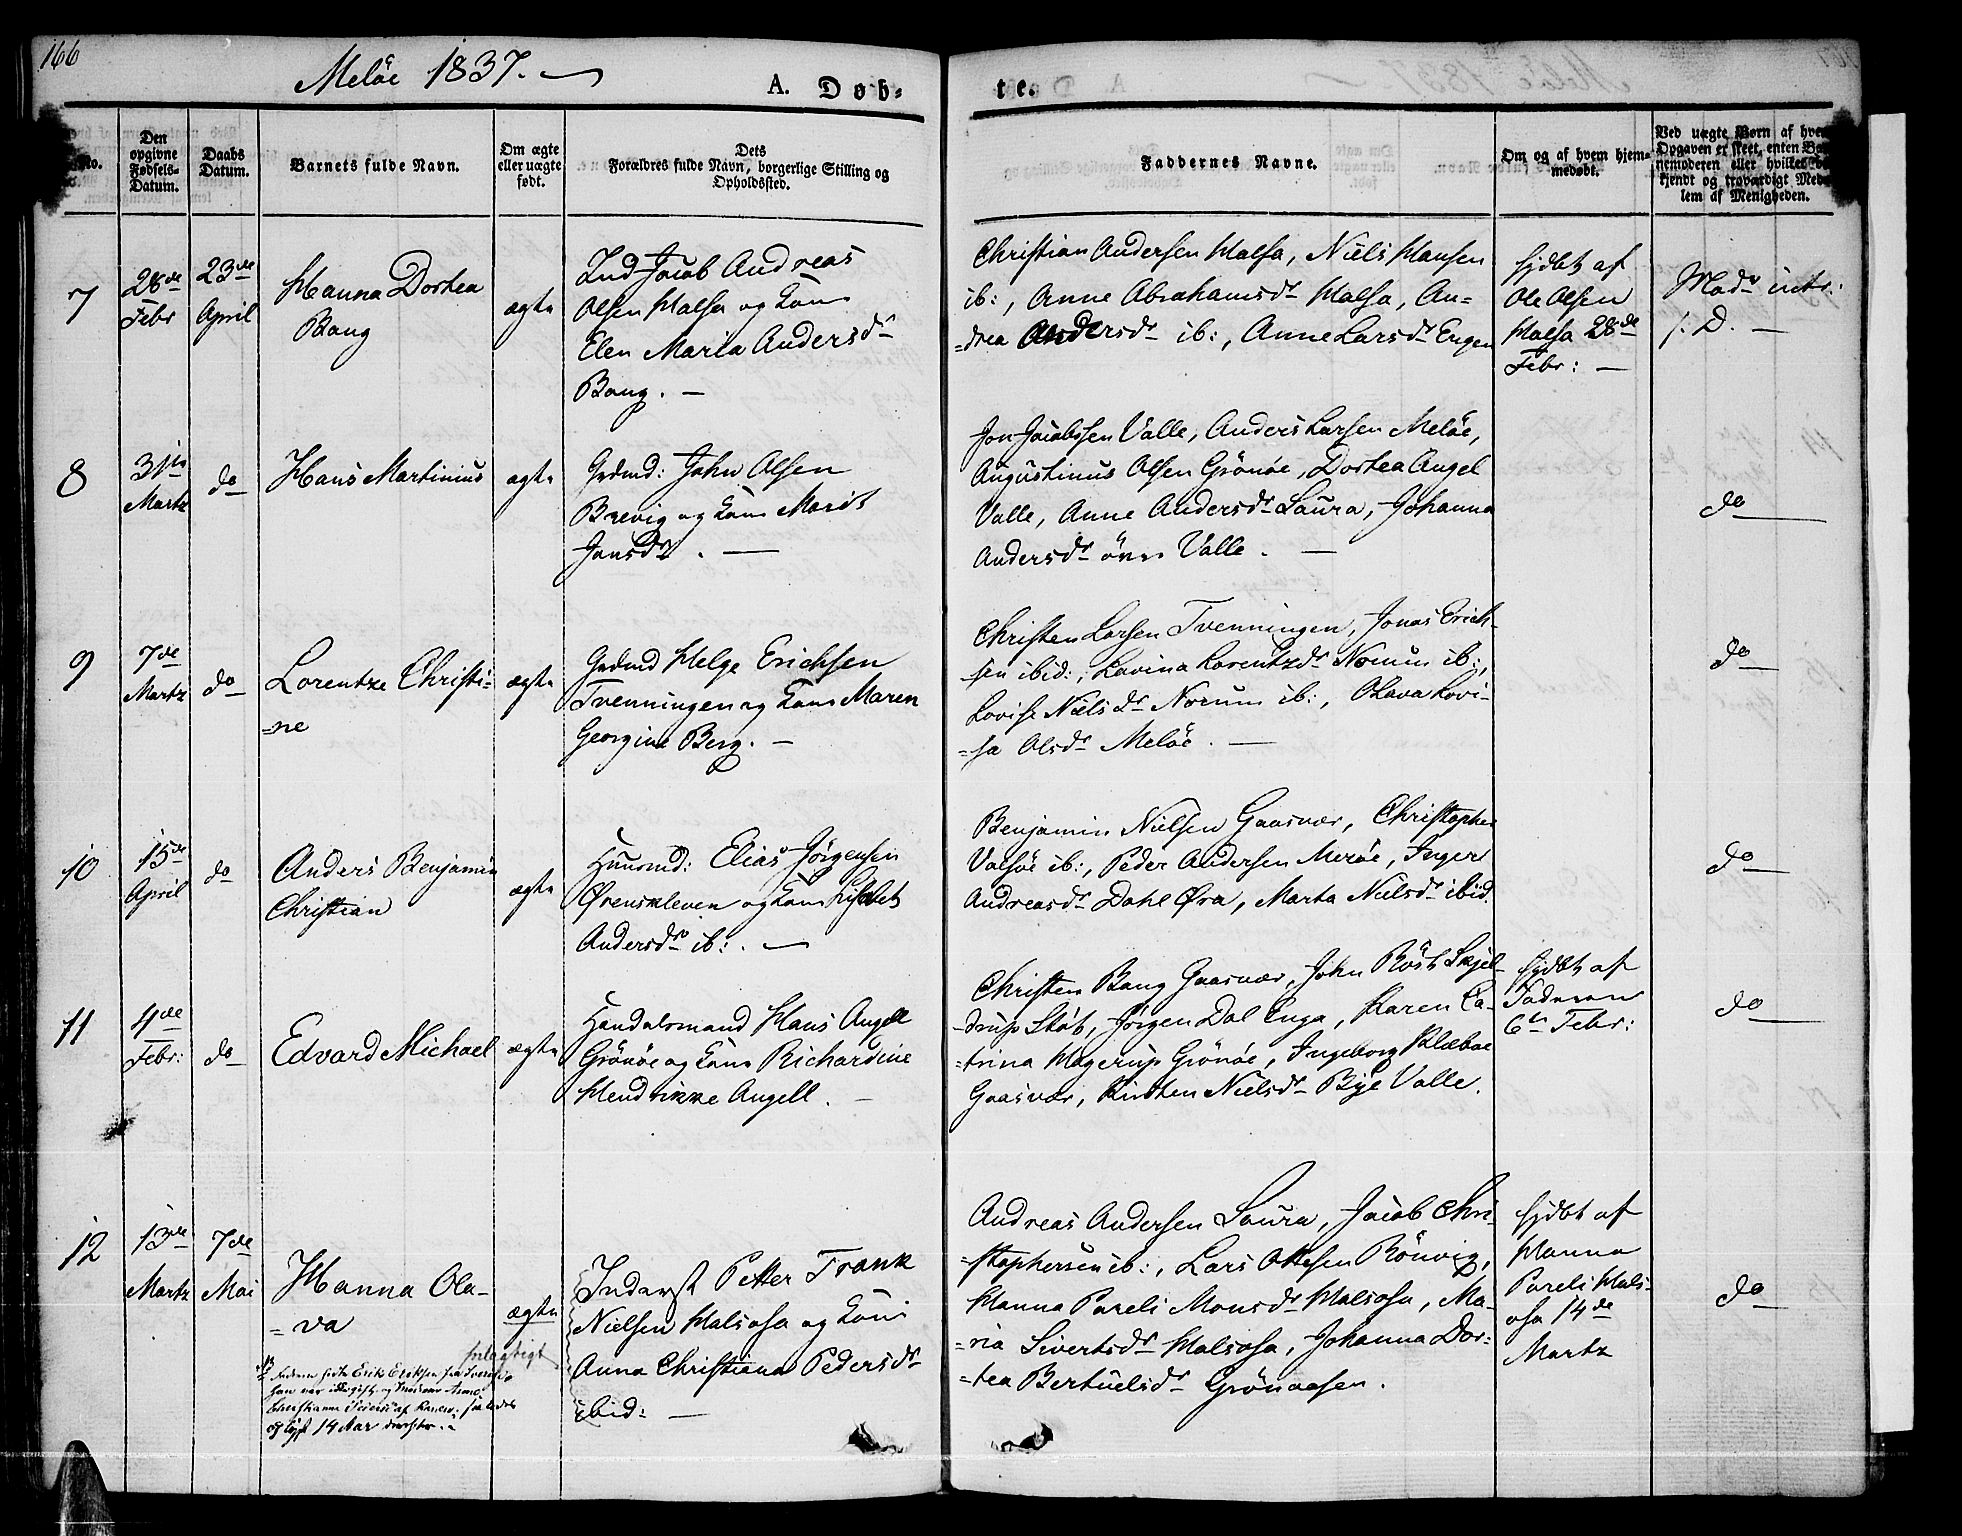 166
Meløe 1837.
A. Døb-
te.
No.
Den
opgivne
Fødsels-
Datum.
Daabs
Datum.
Barnets fulde Navn.
Om ægte
eller uægte
født.
Dets
Forældres fulde Navn, borgerlige Stilling og
Opholdssted.
Faddernes Navne.
Om og af hvem hjem-
medøbt.
Ved uægte Børn af hvem
Opgaven er skeet, enten Bar-
nemoderen eller hvilket be-
kjendt og troværdigt Med-
lem af Menigheden.
7
28de
Febr
23de
April
Hanna Dortea
Bang
ægte
Ind Jacob Andreas
Olsen Halsa og Kone
Elen Maria Andersdr
Bang. —
Christian Andersen Halsa, Niels Hansen
ib:, Anne Abrahamsdr Halsa, An-
=drea Andersdr ib:, Anne Larsdr Engen
hjdbt af
Ole Olsen
Halsa 28de
Febr: —
Modr intr:
s: D. —
8
3die
Martz
do
Hans Martinius
ægte
Grdmd: John Olsen
Brevig og Kone Marit
Jonsdr. —
Jon Jacobsen Valle, Anders Larsen Meløe,
Augustinus Olsen Grønøe, Dortea Angel
Valle, Anne Andersdr Saura, Johanna
Andersdr øvre Valle. —
do
9
7de
Martz
do
Lorentze Christi-
=ne
ægte
Grdmd Helge Erichsen
Tvenningen og Kone Maren
Georgine Berg. —
Christen Larsen Tvenningen, Jonas Erich-
sen ibid:, Lavina Lorentzdr Norum ib:,
Lovise Nielsdr Norum ib:, Olava Lovi-
=sa Olsdr Meløe. —
do
10
15de
April
do
Anders Benjamin
Christian
ægte
Huusmd: Elias Jörgensen
Ørenskleven og Kone Lisabet
Andersdr ib:. —
Benjamin Nielsen Gaasvær, Christopher
Valsøe ib:, Peder Andersen Merøe, Inger
Andreasdr Dahl Øra, Marta Nielsdr ibid.
do
11
4de
Febr:
do
Edvard Michael
ægte
Handelsmand Hans Angell
Grønøe og Kone Richardine
Hendrikke Angell. —
Christen Bang Gaasvær, John Röst Skjel-
drup Støt, Jörgen Dal Enga, Karen Ca-
-trina Hagerup Grønøe, Ingeborg Klæboe
Gaasvær, Kirsten Nielsdr Bye Valle.
hjdbt af
Faderen
6te Febr:
do
12
13de
Martz
7de
Mai
Hanna Ola-
=va
ægte
Inderst Petter Frank
Nielsen Halsosa og Kone
Anna Christiana Pedersdr
ibid: —
Andreas Andersen Saura, Jacob Chri-
=stophersen ib:, Lars Ottesen Rönvig,
Hanna Pareli Monsdr Halsosa, Ma-
=ria Sivertsdr Halsosa, Johanna Dor-
=tea Bertuelsdr Grönaasen.
hjdbt af
Hanna
Pareli Hals-
osa 14de
Martz
do
Erik Eriksen fra
og Moderen Anne
14 Aar